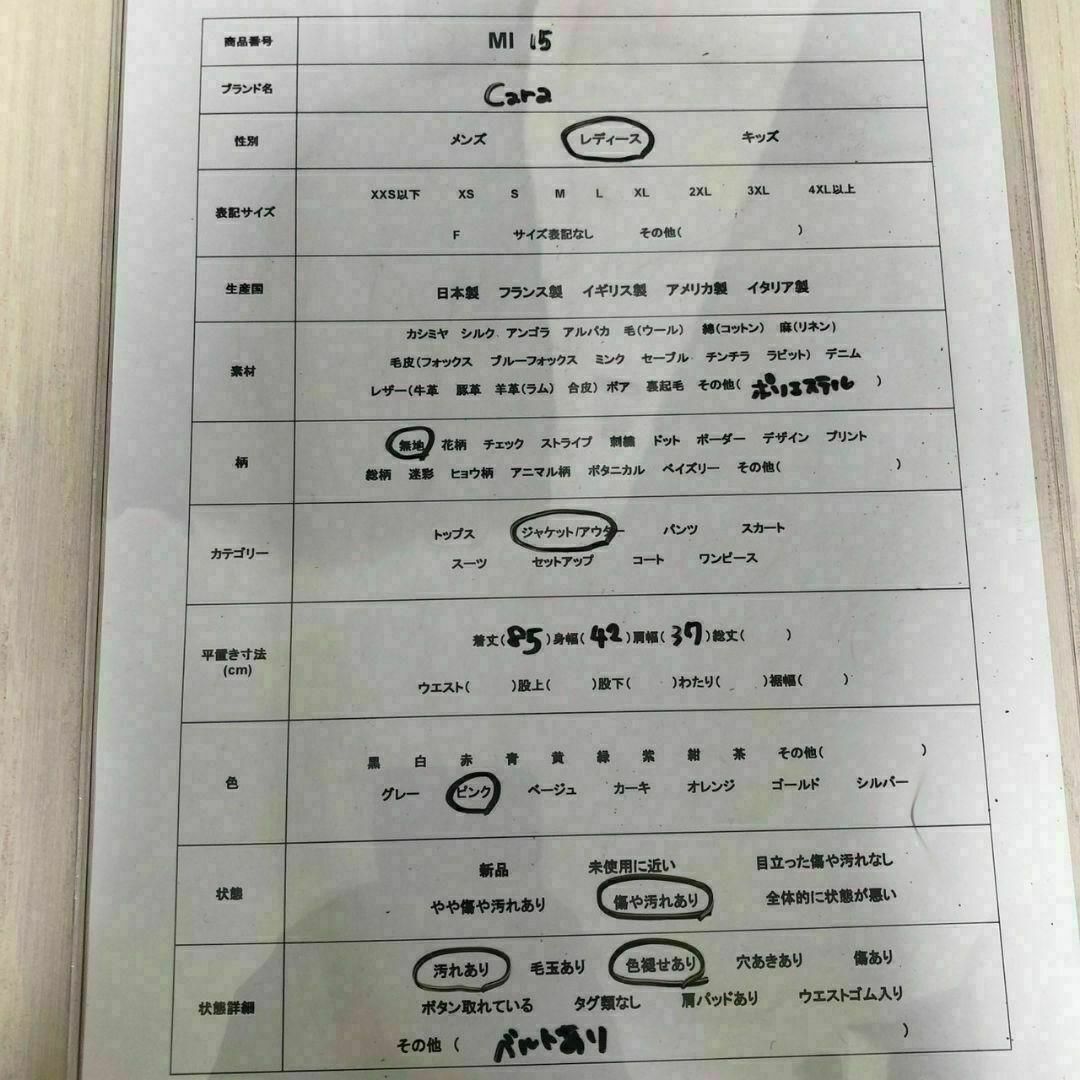 商品番号 MI 15
ブランド名 Cara
性別 メンズ レディース キッズ
表記サイズ
XXS以下 XS S M L XL 2XL 3XL 4XL以上
F サイズ表記なし その他( )
生産国 日本製 フランス製 イギリス製 アメリカ製 イタリア製
素材
カシミヤ シルク アンゴラ アルパカ 毛(ウール) 綿(コットン) 麻(リネン)
毛皮(フォックス ブルーフォックス ミンク セーブル チンチラ ラビット) デニム
レザー(牛革 豚革 羊革(ラム) 合皮) ボア 裏起毛 その他( ポリエステル )
柄
無地 花柄 チェック ストライプ 刺繍 ドット ボーダー デザイン プリント
総柄 迷彩 ヒョウ柄 アニマル柄 ボタニカル ペイズリー その他( )
カテゴリー
トップス ジャケット/アウター パンツ スカート
スーツ セットアップ コート ワンピース
平置き寸法
(cm)
着丈(85)身幅(42)肩幅(37)総丈( )
ウエスト( )股上( )股下( )わたり( )裾幅( )
色
黒 白 赤 青 黄 緑 紫 紺 茶 その他( )
グレー ピンク ベージュ カーキ オレンジ ゴールド シルバー
状態
新品 未使用に近い 目立った傷や汚れなし
やや傷や汚れあり 傷や汚れあり 全体的に状態が悪い
状態詳細
汚れあり 毛玉あり 色褪せあり 穴あきあり 傷あり
ボタン取れている タグ類なし 肩パッドあり ウエストゴム入り
その他 ( ベルトあり )